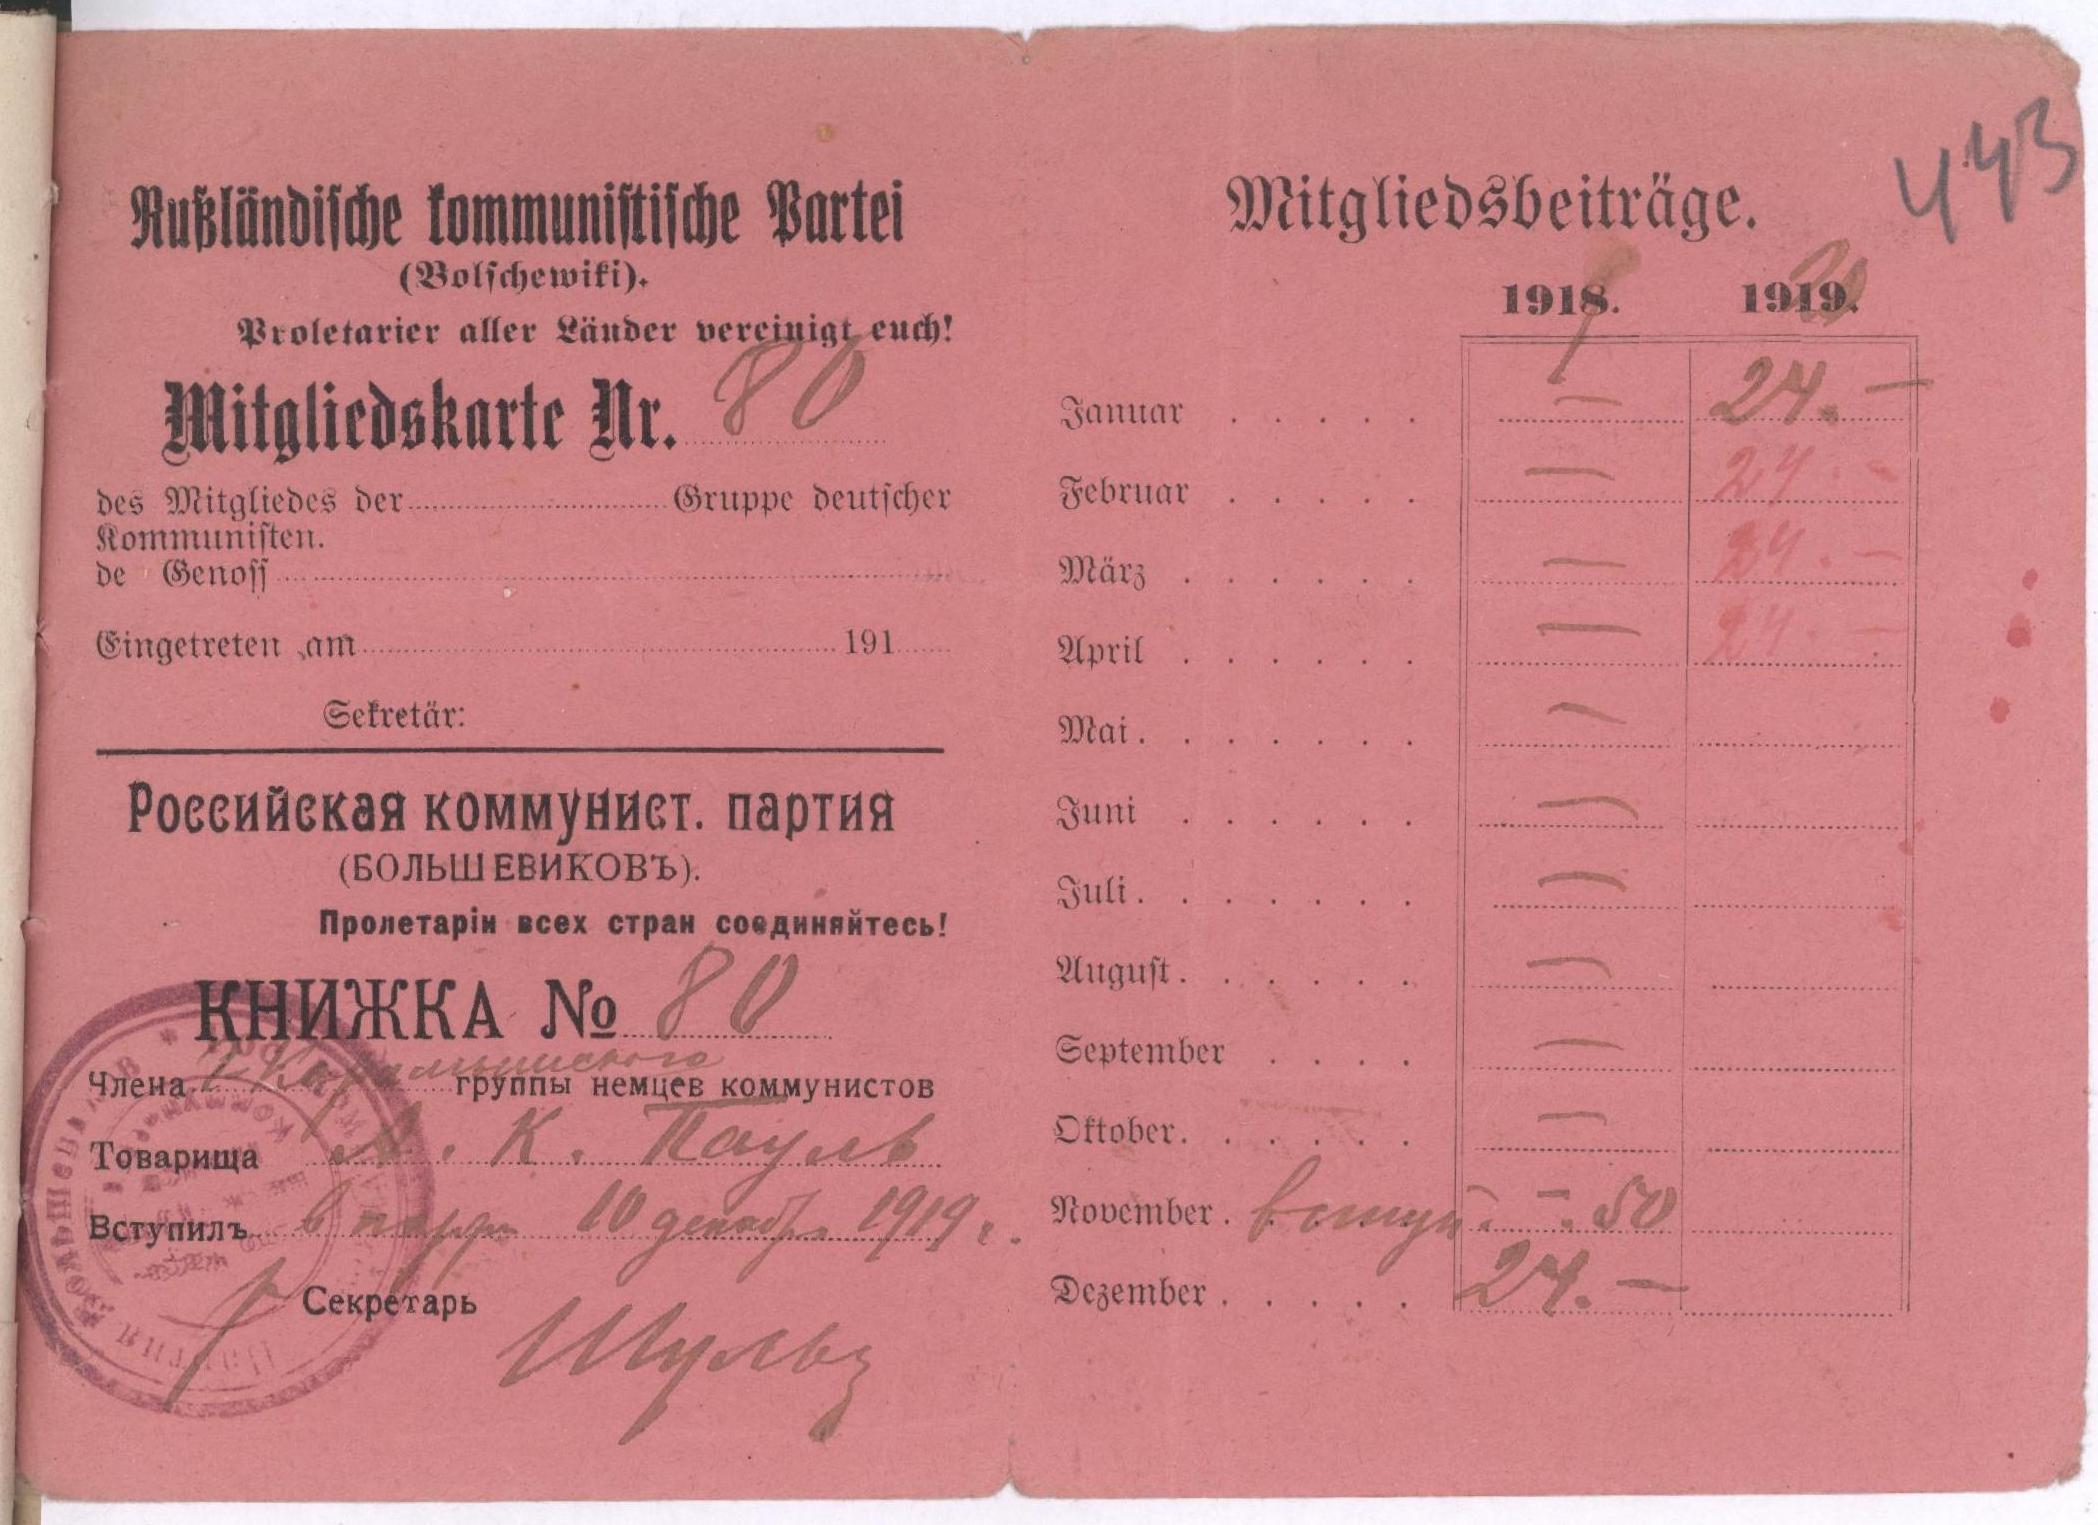 Rußländische kommunistische Partei
(Bolschewiki).
Proletarier aller Länder vereinigt euch!
Mitgliedskarte Nr. 80
des Mitgliedes der Gruppe deutscher
Kommunisten.
de Genoss
Eingetreten am 191
Sekretär:
Российская коммунист. партия
(БОЛЬШЕВИКОВЪ).
Пролетаріи всех стран соединяйтесь!
КНИЖКА № 80
Члена группы немцев коммунистов
Товарища А. К. Пауль
Вступилъ в декабр. 1919 г.
Секретарь
Шульц
443
Mitgliedsbeiträge.
1918. 1919. 20
Januar — 24.—
Februar — 24.—
März — 24.—
April — 24.—
Mai —
Juni —
Juli —
August —
September —
Oktober —
November вступ. —.50
Dezember 24.—